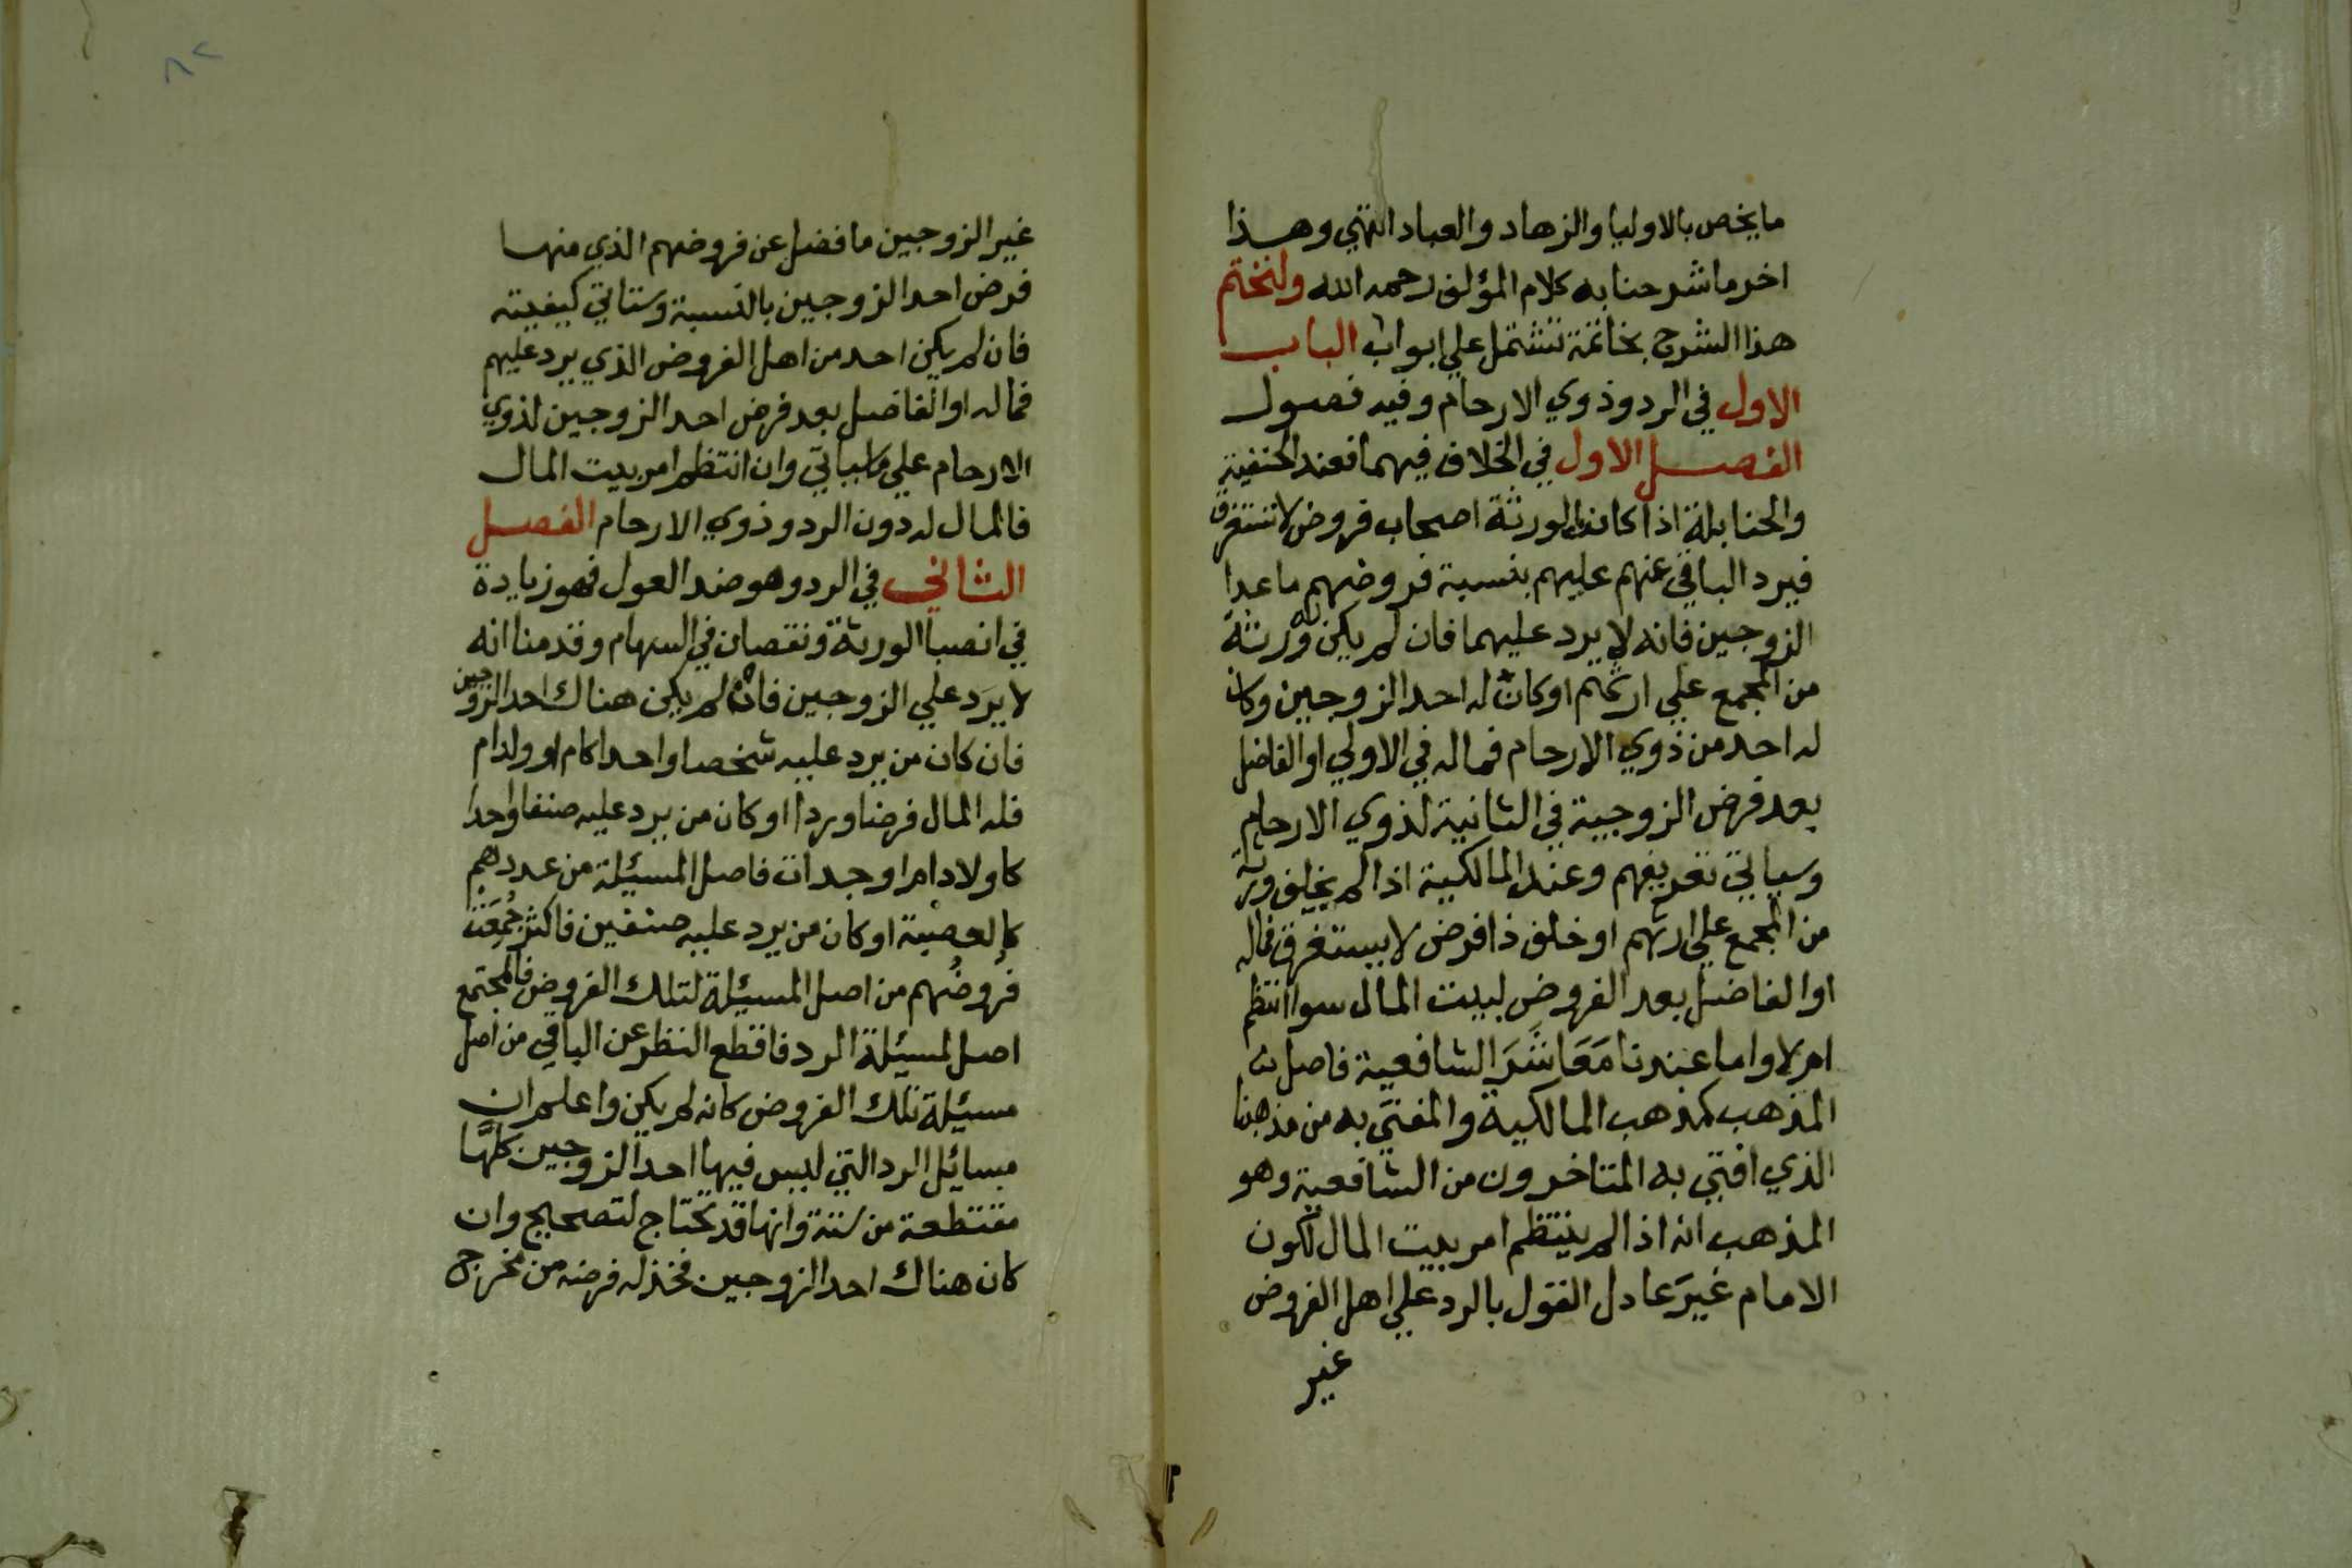 ما يخص بالاوليا والزهاد والعباد انتهي وهذا
اخر ما شرحنا به كلام المؤلف رحمه الله ولنختم
هذا الشرح بخاتمة تشتمل علي ابواب الباب
الاول في الرد وذوي الارحام وفيه فصول
الفصل الاول في الخلاف فيهما فعند الحنفية
والحنابلة اذا كانت الورثة اصحاب فروض لا تستغرق
فيرد الباقي عنهم عليهم بنسبة فروضهم ما عدا
الزوجين فانه لا يرد عليهما فان لم يكن له ورثة
من المجمع علي ارثهم او كان له احد الزوجين وكان
له احد من ذوي الارحام فماله في الاولي او الفاضل
بعد فرض الزوجية في الثانية لذوي الارحام
وسياتي تعريفهم وعند المالكية اذا لم يخلف ورثة
من المجمع علي ارثهم او خلف ذا فرض لا يستغرق فماله
او الفاضل بعد الفروض لبيت المال سوا انتظم
ام لا واما عندنا مَعَاشَرَ الشافعية فاصل
المذهب كمذهب المالكية والمفتَي به من مذهبنا
الذي افتي به المتاخرون من الشافعية وهو
المذهب انه اذا لم ينتظم امر بيت المال لكون
الامام غيرَ عادل القول بالرد علي اهل الفروض
غير
٨٢
غير الزوجين ما فضل عن فروضهم الذي منها
فرض احد الزوجين بالنسبة وستاتي كيفيته
فان لم يكن احد من اهل الفروض الذي يرد عليهم
فماله او الفاضل بعد فرض احد الزوجين لذوي
الارحام علي ما سياتي وان انتظم امر بيت المال
فالمال له دون الرد وذوي الارحام الفصل
الثاني في الرد وهو ضد العول فهو زيادة
في انصبا الورثة ونقصان في السهام وقدمنا انه
لا يرَد علي الزوجين فان لم يكن هناك احد الزوجين
فان كان من يرد عليه شخصا واحدا كام او ولد ام
فله المال فرضا وردا او كان من يرد عليه صنفا واحدا
كاولاد ام او جدات فاصل المسيلة من عددهم
كالعصبة او كان من يرد عليه صنفين فاكثر جُمِعَت
فُروضُهم من اصل المسيلة لتلك الفروض فالمجتمع
اصل لمسيلة الرد فاقطع النظر عن الباقي من اصل
مسيلة تلك الفروض كانه لم يكن واعلم ان
مسائل الرد التي ليس فيها احد الزوجين كلها
مقتطعة من ستة وانها قد تحتاج لتصحيح وان
كان هناك احد الزوجين فخذ له فرضه من مخرج